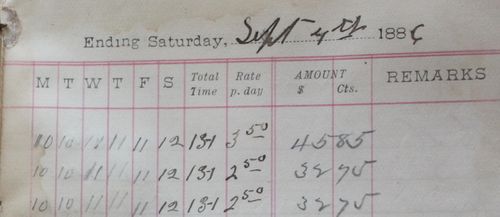 Ending Saturday, Sept 4th 1886
M T W T F S Total Time Rate p. day AMOUNT $ Cts. REMARKS
10 10 11 11 11 12 131 3 50 45 85
10 10 11 11 11 12 131 2 50 32 75
10 10 11 11 11 12 131 2 50 32 75